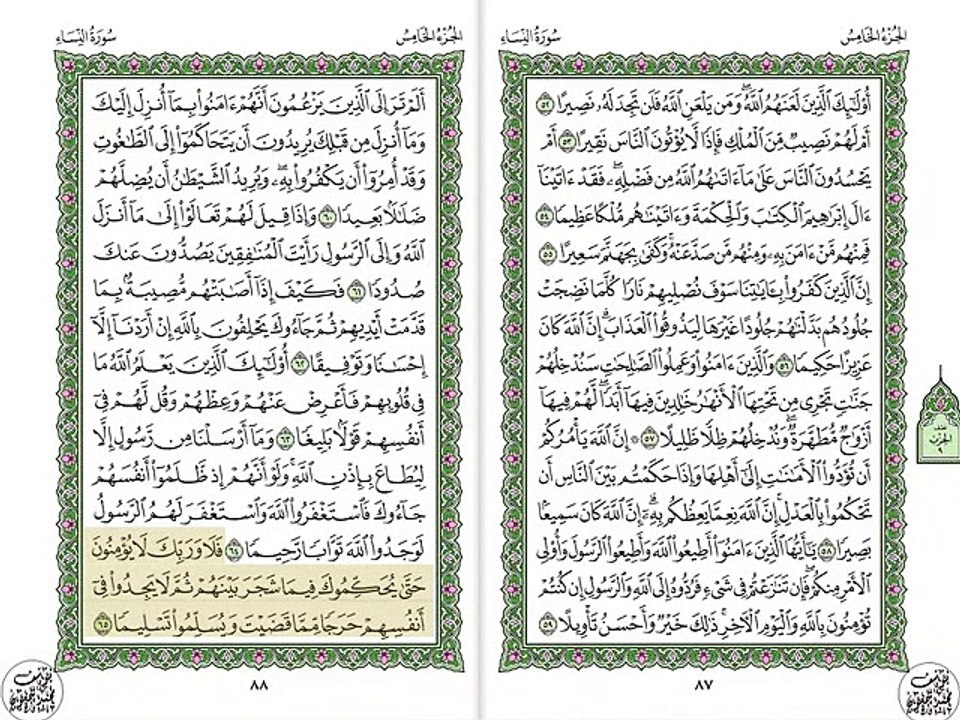 الجزء الخامس
سورة النساء
أُوْلَٰٓئِكَ ٱلَّذِينَ لَعَنَهُمُ ٱللَّهُۖ وَمَن يَلْعَنِ ٱللَّهُ فَلَن تَجِدَ لَهُۥ نَصِيرًا ٥٢
أَمْ لَهُمْ نَصِيبٌ مِّنَ ٱلْمُلْكِ فَإِذًا لَّا يُؤْتُونَ ٱلنَّاسَ نَقِيرًا ٥٣ أَمْ
يَحْسُدُونَ ٱلنَّاسَ عَلَىٰ مَآ ءَاتَىٰهُمُ ٱللَّهُ مِن فَضْلِهِۦۖ فَقَدْ ءَاتَيْنَآ
ءَالَ إِبْرَٰهِيمَ ٱلْكِتَٰبَ وَٱلْحِكْمَةَ وَءَاتَيْنَٰهُم مُّلْكًا عَظِيمًا ٥٤
فَمِنْهُم مَّنْ ءَامَنَ بِهِۦ وَمِنْهُم مَّن صَدَّ عَنْهُۚ وَكَفَىٰ بِجَهَنَّمَ سَعِيرًا ٥٥
إِنَّ ٱلَّذِينَ كَفَرُواْ بِـَٔايَٰتِنَا سَوْفَ نُصْلِيهِمْ نَارًا كُلَّمَا نَضِجَتْ
جُلُودُهُم بَدَّلْنَٰهُمْ جُلُودًا غَيْرَهَا لِيَذُوقُواْ ٱلْعَذَابَۗ إِنَّ ٱللَّهَ كَانَ
عَزِيزًا حَكِيمًا ٥٦ وَٱلَّذِينَ ءَامَنُواْ وَعَمِلُواْ ٱلصَّٰلِحَٰتِ سَنُدْخِلُهُمْ
جَنَّٰتٍ تَجْرِي مِن تَحْتِهَا ٱلْأَنْهَٰرُ خَٰلِدِينَ فِيهَآ أَبَدًاۖ لَّهُمْ فِيهَآ
أَزْوَٰجٌ مُّطَهَّرَةٌۖ وَنُدْخِلُهُمْ ظِلًّا ظَلِيلًا ٥٧ ۞ إِنَّ ٱللَّهَ يَأْمُرُكُمْ
أَن تُؤَدُّواْ ٱلْأَمَٰنَٰتِ إِلَىٰٓ أَهْلِهَا وَإِذَا حَكَمْتُم بَيْنَ ٱلنَّاسِ أَن
تَحْكُمُواْ بِٱلْعَدْلِۚ إِنَّ ٱللَّهَ نِعِمَّا يَعِظُكُم بِهِۦٓۗ إِنَّ ٱللَّهَ كَانَ سَمِيعًۢا
بَصِيرًا ٥٨ يَٰٓأَيُّهَا ٱلَّذِينَ ءَامَنُوٓاْ أَطِيعُواْ ٱللَّهَ وَأَطِيعُواْ ٱلرَّسُولَ وَأُوْلِي
ٱلْأَمْرِ مِنكُمْۖ فَإِن تَنَٰزَعْتُمْ فِي شَيْءٍ فَرُدُّوهُ إِلَى ٱللَّهِ وَٱلرَّسُولِ إِن كُنتُمْ
تُؤْمِنُونَ بِٱللَّهِ وَٱلْيَوْمِ ٱلْأٓخِرِۚ ذَٰلِكَ خَيْرٌ وَأَحْسَنُ تَأْوِيلًا ٥٩
٨٧
نصف
الحزب
٩
الجزء الخامس
سورة النساء
أَلَمْ تَرَ إِلَى ٱلَّذِينَ يَزْعُمُونَ أَنَّهُمْ ءَامَنُواْ بِمَآ أُنزِلَ إِلَيْكَ
وَمَآ أُنزِلَ مِن قَبْلِكَ يُرِيدُونَ أَن يَتَحَاكَمُوٓاْ إِلَى ٱلطَّٰغُوتِ
وَقَدْ أُمِرُوٓاْ أَن يَكْفُرُواْ بِهِۦۖ وَيُرِيدُ ٱلشَّيْطَٰنُ أَن يُضِلَّهُمْ
ضَلَٰلًۢا بَعِيدًا ٦٠ وَإِذَا قِيلَ لَهُمْ تَعَالَوْاْ إِلَىٰ مَآ أَنزَلَ
ٱللَّهُ وَإِلَى ٱلرَّسُولِ رَأَيْتَ ٱلْمُنَٰفِقِينَ يَصُدُّونَ عَنكَ
صُدُودًا ٦١ فَكَيْفَ إِذَآ أَصَٰبَتْهُم مُّصِيبَةٌۢ بِمَا
قَدَّمَتْ أَيْدِيهِمْ ثُمَّ جَآءُوكَ يَحْلِفُونَ بِٱللَّهِ إِنْ أَرَدْنَآ إِلَّآ
إِحْسَٰنًا وَتَوْفِيقًا ٦٢ أُوْلَٰٓئِكَ ٱلَّذِينَ يَعْلَمُ ٱللَّهُ مَا
فِي قُلُوبِهِمْ فَأَعْرِضْ عَنْهُمْ وَعِظْهُمْ وَقُل لَّهُمْ فِيٓ
أَنفُسِهِمْ قَوْلًۢا بَلِيغًا ٦٣ وَمَآ أَرْسَلْنَا مِن رَّسُولٍ إِلَّا
لِيُطَاعَ بِإِذْنِ ٱللَّهِۚ وَلَوْ أَنَّهُمْ إِذ ظَّلَمُوٓاْ أَنفُسَهُمْ
جَآءُوكَ فَٱسْتَغْفَرُواْ ٱللَّهَ وَٱسْتَغْفَرَ لَهُمُ ٱلرَّسُولُ
لَوَجَدُواْ ٱللَّهَ تَوَّابًا رَّحِيمًا ٦٤ فَلَا وَرَبِّكَ لَا يُؤْمِنُونَ
حَتَّىٰ يُحَكِّمُوكَ فِيمَا شَجَرَ بَيْنَهُمْ ثُمَّ لَا يَجِدُواْ فِيٓ
أَنفُسِهِمْ حَرَجًا مِّمَّا قَضَيْتَ وَيُسَلِّمُواْ تَسْلِيمًا ٦٥
٨٨